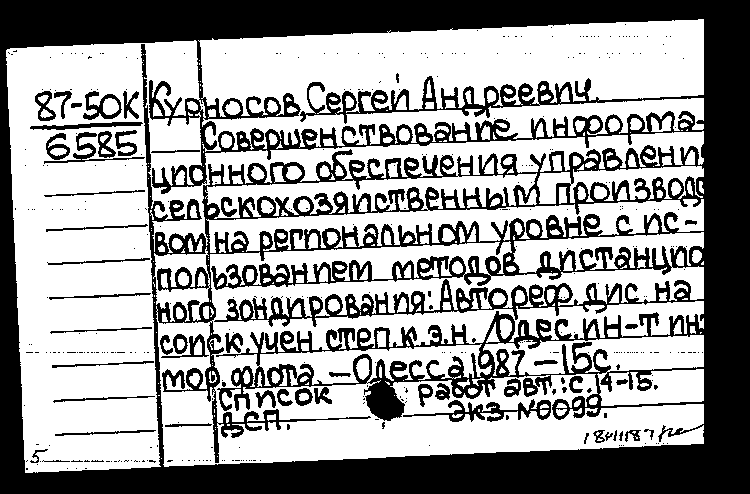 87-50К
6585
Курносов, Сергей Андреевич.
Совершенствование информа-
ционного обеспечения управления
сельскохозяйственным производс
вом на региональном уровне с ис-
пользованием методов дистанцио
ного зондирования: Автореф. дис. на
соиск. учен. степ. к.э.н. / Одес. ин-т инж
мор. флота. – Одесса, 1987. – 15с.
Список работ авт.: с. 14-15.
ДСП. Экз. №0099.
5